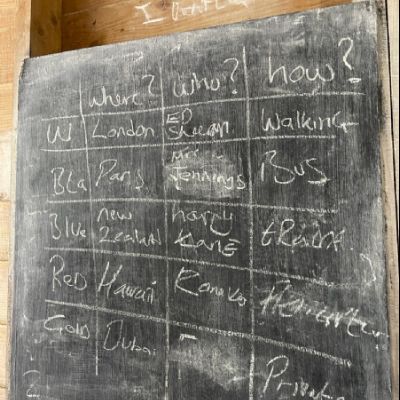 I
where? who? how?
W London ED Sheeran Walking
Bla Paris Mrs Jennings Bus
Blue new Zealand harry Kane train
Red Hawaii
Gold Dubai
Private